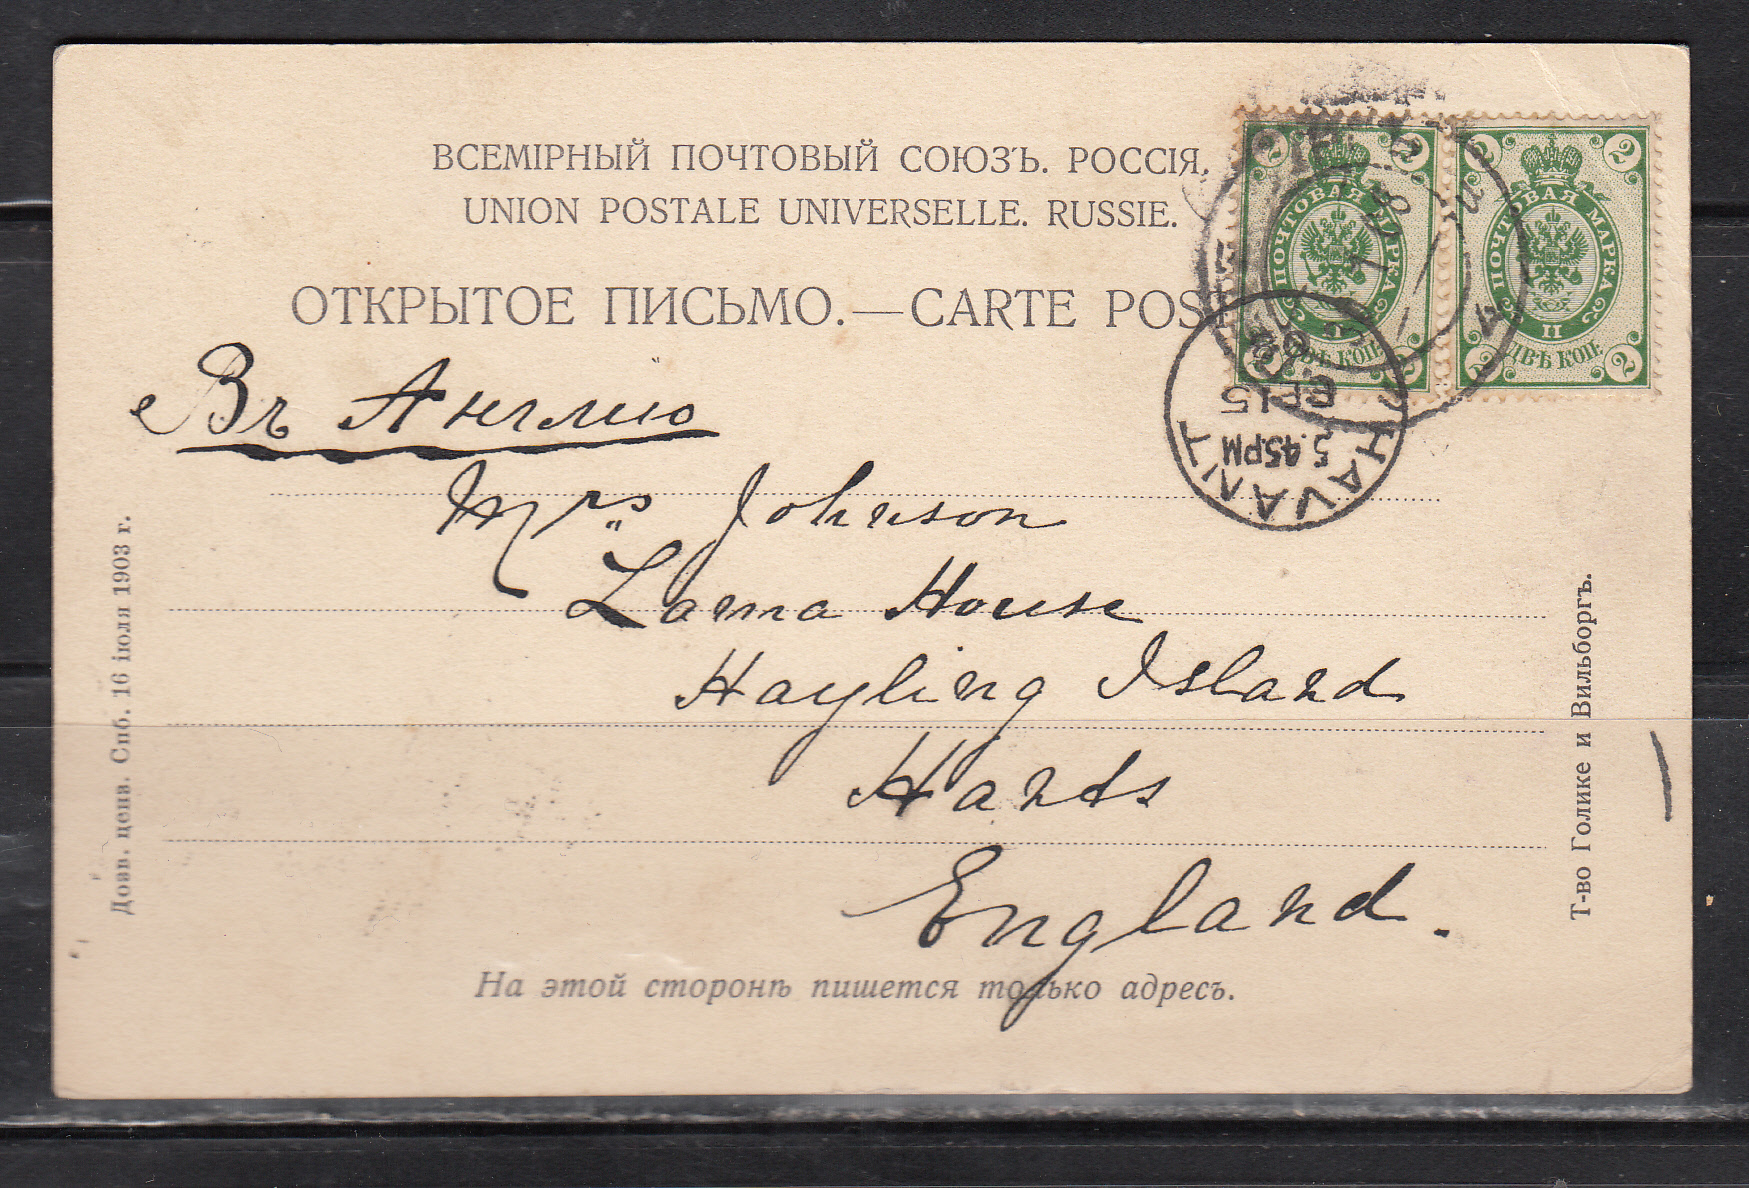 ВСЕМІРНЫЙ ПОЧТОВЫЙ СОЮЗЪ. РОССІЯ.
UNION POSTALE UNIVERSELLE. RUSSIE.
ОТКРЫТОЕ ПИСЬМО.—CARTE POST
2 2 2 2
ПОЧТОВАЯ МАРКА
II
ДВѢ КОП.
2 2 2 2
ПОЧТОВАЯ МАРКА
II
ДВѢ КОП.
HAVANT
5.45PM
SP 15
Въ Англію
Mrs Johnson
Lama House
Hayling Island
Hants
England.
На этой сторонѣ пишется только адресъ.
Довв. ценз. Спб. 16 іюля 1903 г.
Т-во Голике и Вильборгъ.